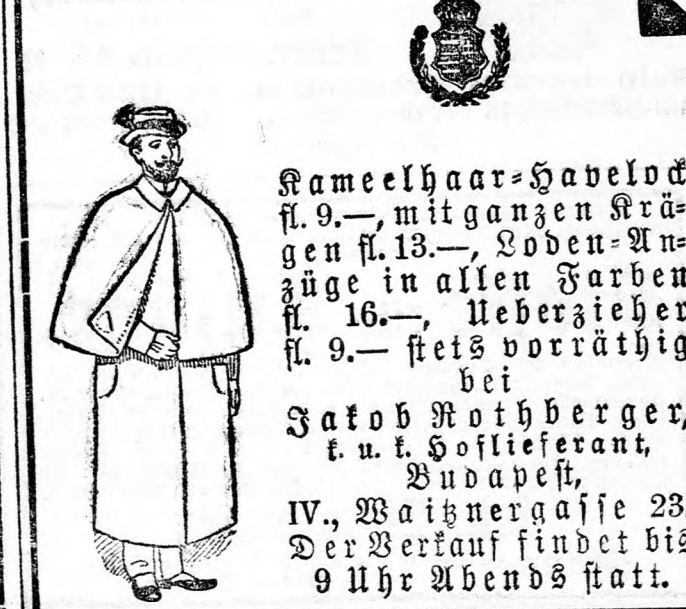 Kameelhaar-Havelock
fl. 9.—, mit ganzen Krä-
gen fl. 13.—, Loden-An-
züge in allen Farben
fl. 16.—, Ueberzieher
fl. 9.— stets vorräthig
bei
Jakob Rothberger,
k. u. k. Hoflieferant,
Budapest,
IV., Waitznergasse 23.
Der Verkauf findet bis
9 Uhr Abends statt.